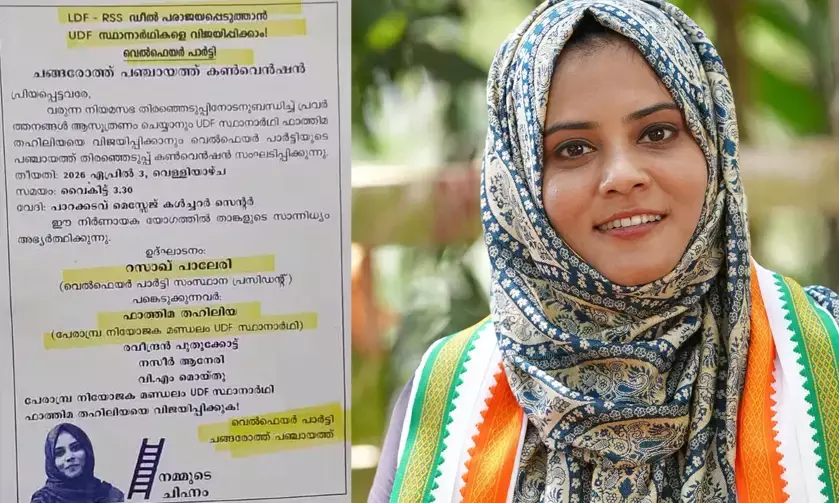 LDF - RSS ഡീൽ പരാജയപ്പെടുത്താൻ
UDF സ്ഥാനാർഥികളെ വിജയിപ്പിക്കാം!
വെൽഫെയർ പാർട്ടി
ചങ്ങരോത്ത് പഞ്ചായത്ത് കൺവെൻഷൻ
പ്രിയപ്പെട്ടവരേ,
വരുന്ന നിയമസഭ തിരഞ്ഞെടുപ്പിനോടനുബന്ധിച്ച് പ്രവർ
ത്തനങ്ങൾ ആസൂത്രണം ചെയ്യാനും UDF സ്ഥാനാർഥി ഫാത്തിമ
തഹ്‌ലിയയെ വിജയിപ്പിക്കാനും വെൽഫെയർ പാർട്ടിയുടെ
പഞ്ചായത്ത് തിരഞ്ഞെടുപ്പ് കൺവെൻഷൻ സംഘടിപ്പിക്കുന്നു.
തീയതി: 2026 ഏപ്രിൽ 3, വെള്ളിയാഴ്ച
സമയം: വൈകിട്ട് 3.30
വേദി: പാറക്കടവ് മെസ്സേജ് കൾച്ചറൽ സെന്റർ
ഈ നിർണായക യോഗത്തിൽ താങ്കളുടെ സാന്നിധ്യം
അഭ്യർത്ഥിക്കുന്നു.
ഉദ്ഘാടനം:
റസാഖ് പാലേരി
(വെൽഫെയർ പാർട്ടി സംസ്ഥാന പ്രസിഡന്റ്)
പങ്കെടുക്കുന്നവർ:
ഫാത്തിമ തഹ്‌ലിയ
(പേരാമ്പ്ര നിയോജക മണ്ഡലം UDF സ്ഥാനാർഥി)
രവീന്ദ്രൻ പുതുക്കോട്ട്
നസീർ ആനേരി
വി.എം മൊയ്തു
പേരാമ്പ്ര നിയോജക മണ്ഡലം UDF സ്ഥാനാർഥി
ഫാത്തിമ തഹ്‌ലിയയെ വിജയിപ്പിക്കുക!
വെൽഫെയർ പാർട്ടി
ചങ്ങരോത്ത് പഞ്ചായത്ത്
നമ്മുടെ
ചിഹ്നം